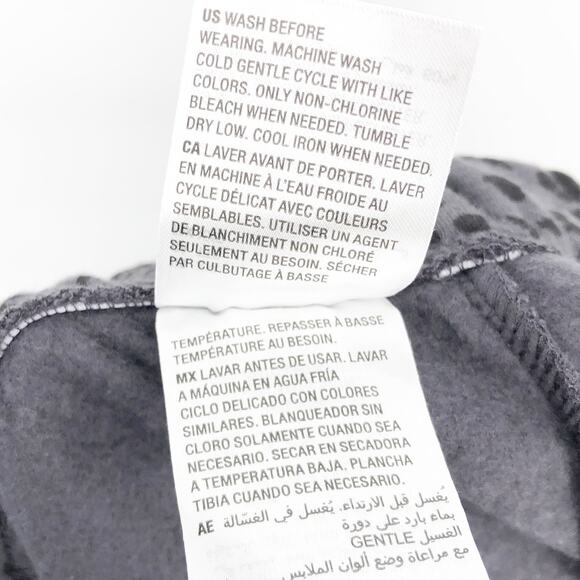 US WASH BEFORE
WEARING. MACHINE WASH
COLD GENTLE CYCLE WITH LIKE
COLORS. ONLY NON-CHLORINE
BLEACH WHEN NEEDED. TUMBLE
DRY LOW. COOL IRON WHEN NEEDED.
CA LAVER AVANT DE PORTER. LAVER
EN MACHINE À L'EAU FROIDE AU
CYCLE DÉLICAT AVEC COULEURS
SEMBLABLES. UTILISER UN AGENT
DE BLANCHIMENT NON CHLORÉ
SEULEMENT AU BESOIN. SÉCHER
PAR CULBUTAGE À BASSE
TEMPÉRATURE. REPASSER À BASSE
TEMPÉRATURE AU BESOIN.
MX LAVAR ANTES DE USAR. LAVAR
A MÁQUINA EN AGUA FRÍA
CICLO DELICADO CON COLORES
SIMILARES. BLANQUEADOR SIN
CLORO SOLAMENTE CUANDO SEA
NECESARIO. SECAR EN SECADORA
A TEMPERATURA BAJA. PLANCHA
TIBIA CUANDO SEA NECESARIO.
AE يُغسل قبل الارتداء. يُغسل في الغسّالة
بماء بارد على دورة
الغسيل GENTLE
مع مراعاة وضع ألوان الملابس